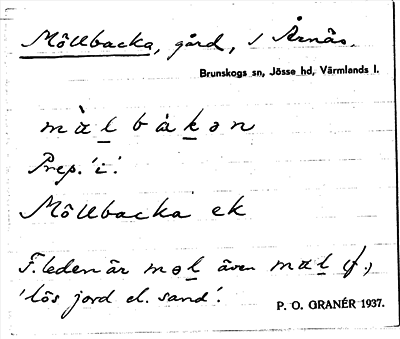 Möllbacka, gård, i Årnäs.
Brunskogs sn, Jösse hd, Värmlands l.
màl bàkən
Prep. 'i'.
Möllbacka ek
F. leden är məl även mal f.,
'lös jord el. sand'.
P. O. GRANÉR 1937.